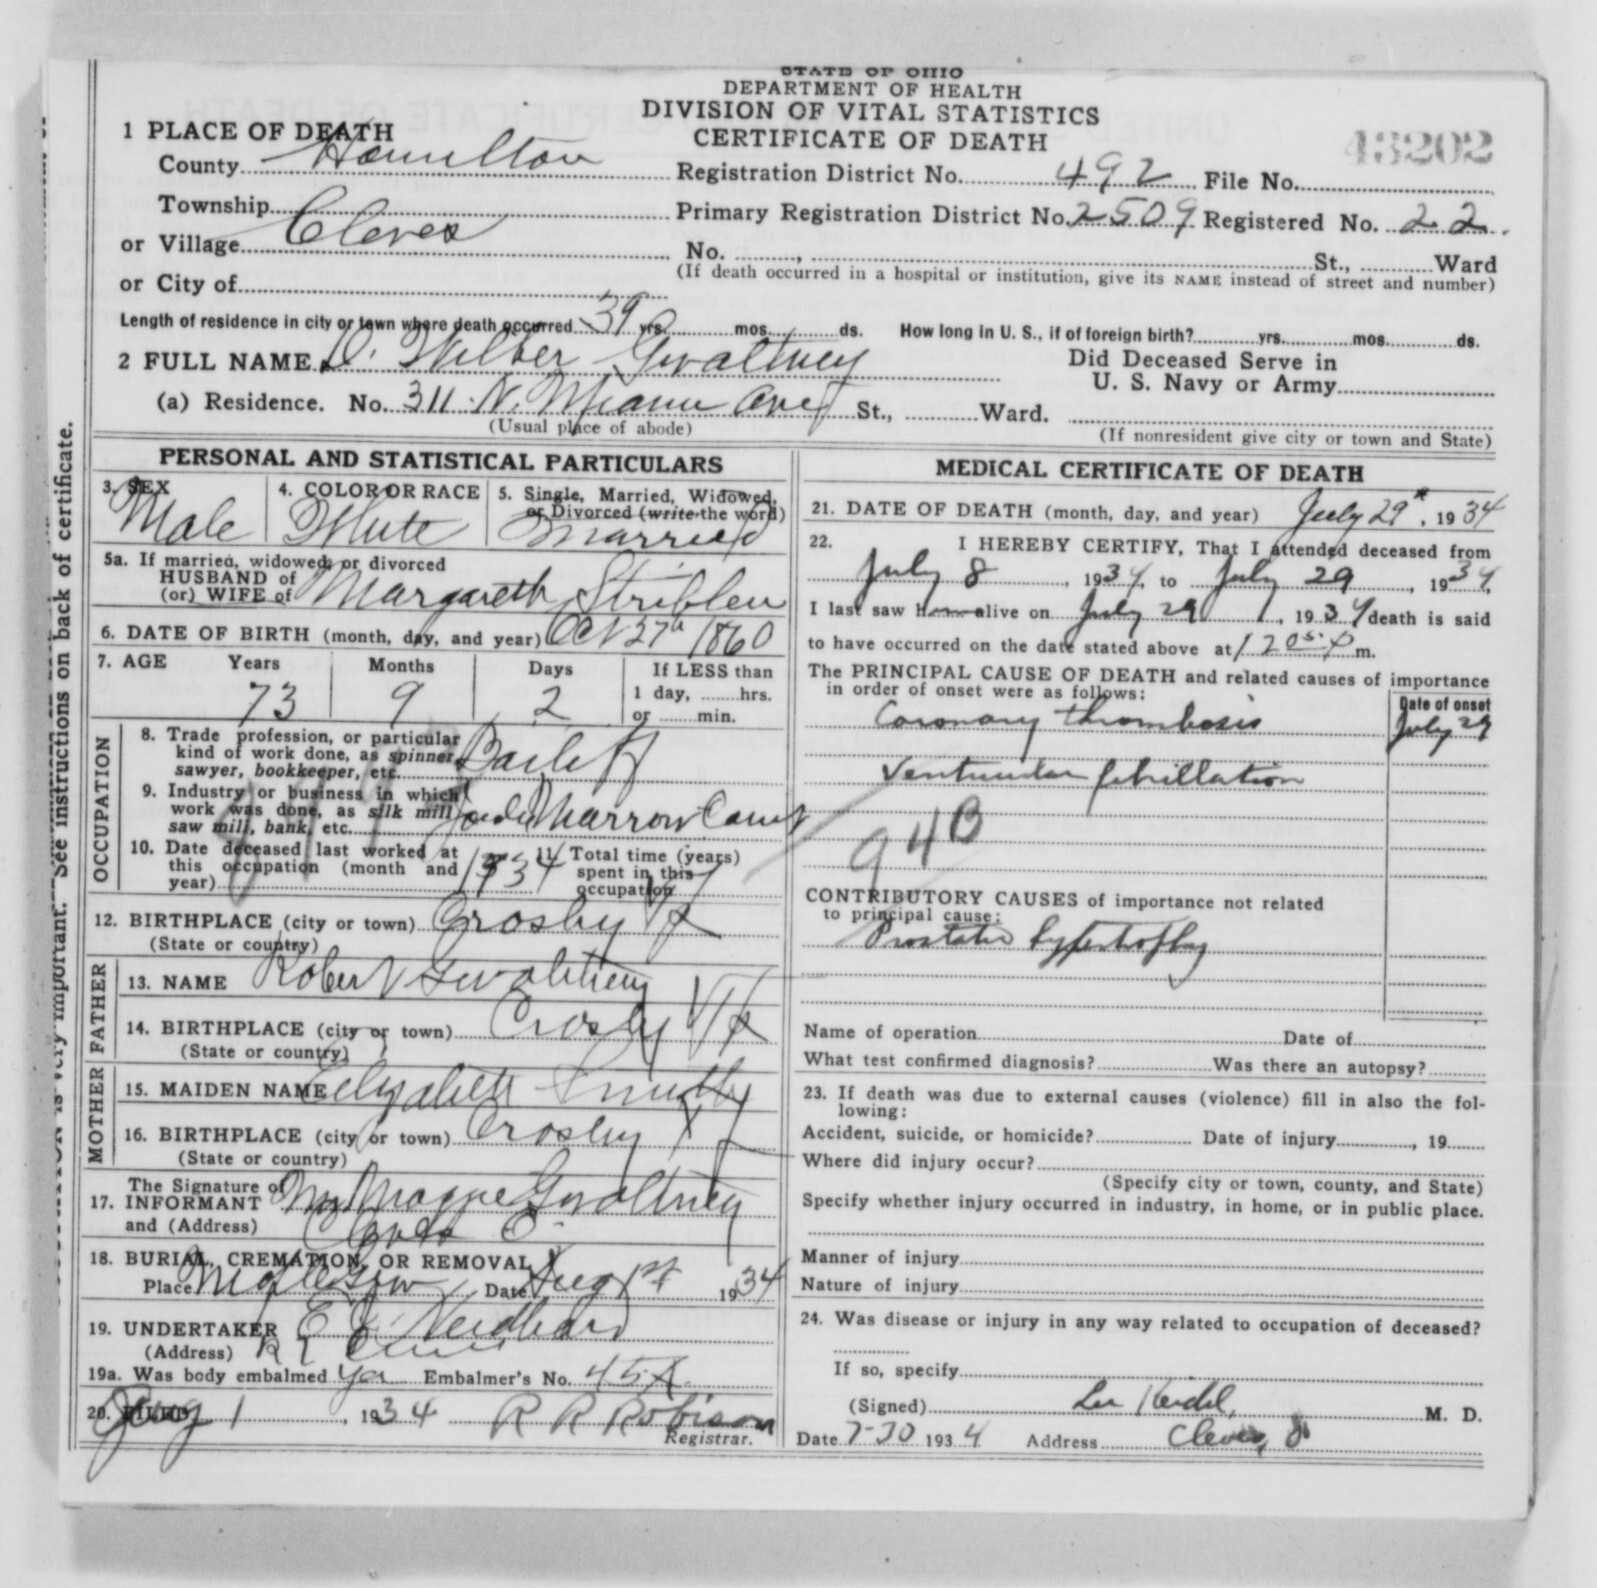 STATE OF OHIO
DEPARTMENT OF HEALTH
DIVISION OF VITAL STATISTICS
CERTIFICATE OF DEATH
43202
1 PLACE OF DEATH
County Hamilton Registration District No. 492 File No.
Township Primary Registration District No. 2509 Registered No. 22.
or Village Cleves No. , St., Ward
(If death occurred in a hospital or institution, give its NAME instead of street and number)
or City of
Length of residence in city or town where death occurred 39 yrs. mos. ds. How long in U. S., if of foreign birth? yrs. mos. ds.
2 FULL NAME D. Wilber Gwaltney Did Deceased Serve in
U. S. Navy or Army
(a) Residence. No. 311 N. Miami Ave St., Ward.
(Usual place of abode) (If nonresident give city or town and State)
PERSONAL AND STATISTICAL PARTICULARS
3. SEX 4. COLOR OR RACE 5. Single, Married, Widowed, or Divorced (write the word)
Male White Married
5a. If married, widowed, or divorced
HUSBAND of
(or) WIFE of Margareth Striblen
6. DATE OF BIRTH (month, day, and year) Oct 27th 1860
7. AGE Years Months Days If LESS than
1 day, hrs.
or min.
73 9 2
OCCUPATION
8. Trade profession, or particular
kind of work done, as spinner,
sawyer, bookkeeper, etc. Bailiff
9. Industry or business in which
work was done, as silk mill,
saw mill, bank, etc. Marrow Court
10. Date deceased last worked at
this occupation (month and
year) 1934
11. Total time (years)
spent in this
occupation
12. BIRTHPLACE (city or town) Crosby
(State or country)
FATHER
13. NAME Robert Gwaltney
14. BIRTHPLACE (city or town) Crosby
(State or country)
MOTHER
15. MAIDEN NAME Elizabeth
16. BIRTHPLACE (city or town) Crosby
(State or country)
The Signature of
17. INFORMANT Mrs Maggie Gwaltney
and (Address) Cleves O.
18. BURIAL, CREMATION, OR REMOVAL
Place Date Aug 1st 1934
19. UNDERTAKER
(Address)
19a. Was body embalmed yes Embalmer's No. 45A
20. FILED Aug 1, 1934 R R Robison
Registrar.
MEDICAL CERTIFICATE OF DEATH
21. DATE OF DEATH (month, day, and year) July 29", 1934
22. I HEREBY CERTIFY, That I attended deceased from
July 8, 1934, to July 29, 1934,
I last saw him alive on July 29, 1934 death is said
to have occurred on the date stated above at 1 20 P m.
The PRINCIPAL CAUSE OF DEATH and related causes of importance
in order of onset were as follows:
Date of onset
Coronary thrombosis July 29
Ventricular fibrillation
94B
CONTRIBUTORY CAUSES of importance not related
to principal cause:
Prostatic hypertrophy
Name of operation Date of
What test confirmed diagnosis? Was there an autopsy?
23. If death was due to external causes (violence) fill in also the fol-
lowing:
Accident, suicide, or homicide? Date of injury , 19
Where did injury occur?
(Specify city or town, county, and State)
Specify whether injury occurred in industry, in home, or in public place.
Manner of injury
Nature of injury
24. Was disease or injury in any way related to occupation of deceased?
If so, specify
(Signed) M. D.
Date 7-30 1934 Address Cleves, O
See instructions on back of certificate.
is very important.